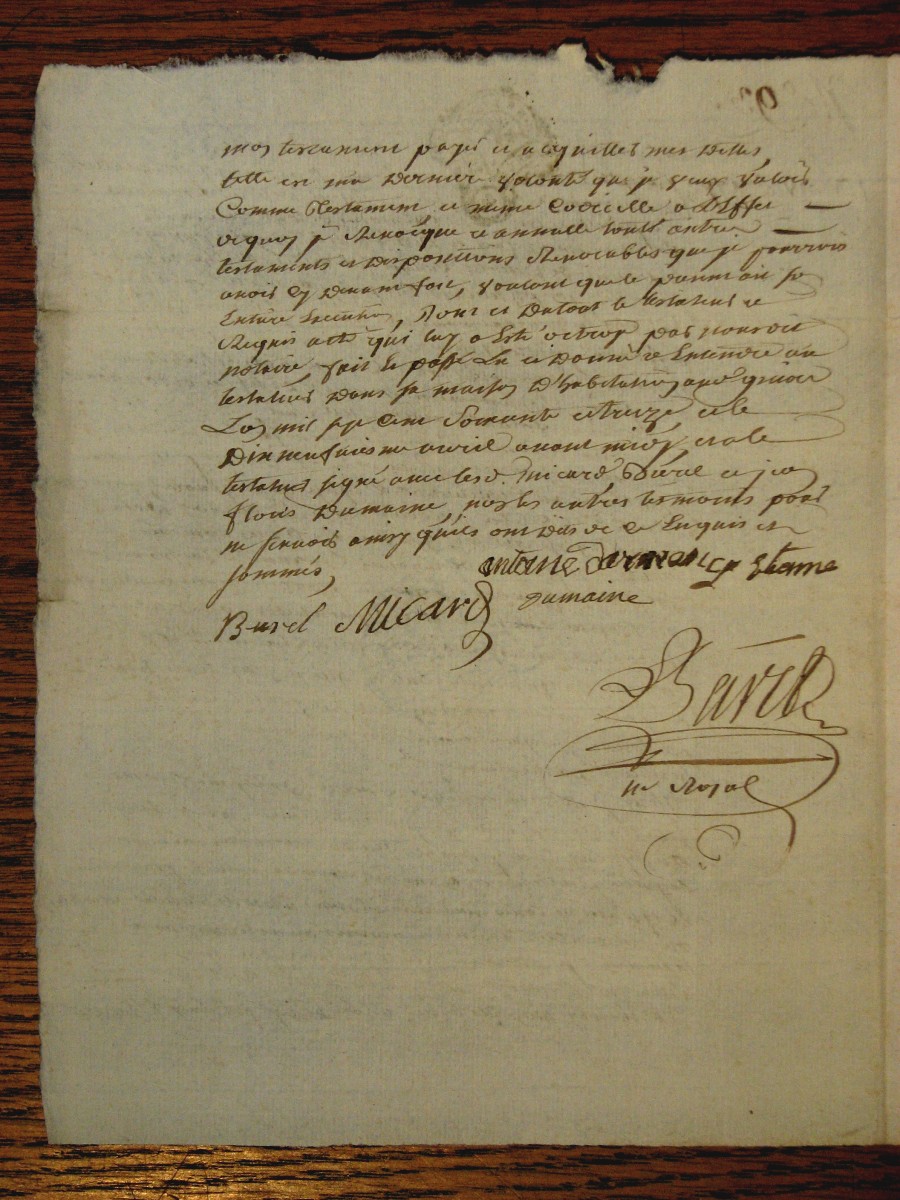 mon testament payé et acquitter mes Dettes
telle est ma Derniere volonté que je veux valoir
Comme testament et meme Codicille a L'Effet
dequoy je Revocque et annulle touts autres
testaments et Dispositions Revocables que je pourrois
avoir cy Devant fait, voulant que le present ait sa
Entiere Execution, Dont et Du tout le testateur a
Requis acte qui luy a Esté octroyé par nousdit
notaire, fait et passé Lu et Donné a Entendre au
testateur Dans sa maison D'habitation
L'an mil sept Cent Soixante et treize et le
Dix neufvieme avril avant midy et a le
testateur signé avec les s. Micard Burel et
Dumaine, non les autres temoins pour
ne sçavoir ainsy qu'ils ont Dit de ce Enquis et
sommés,
antoine
Dumaine
Burel Micard
Burel
no Royal